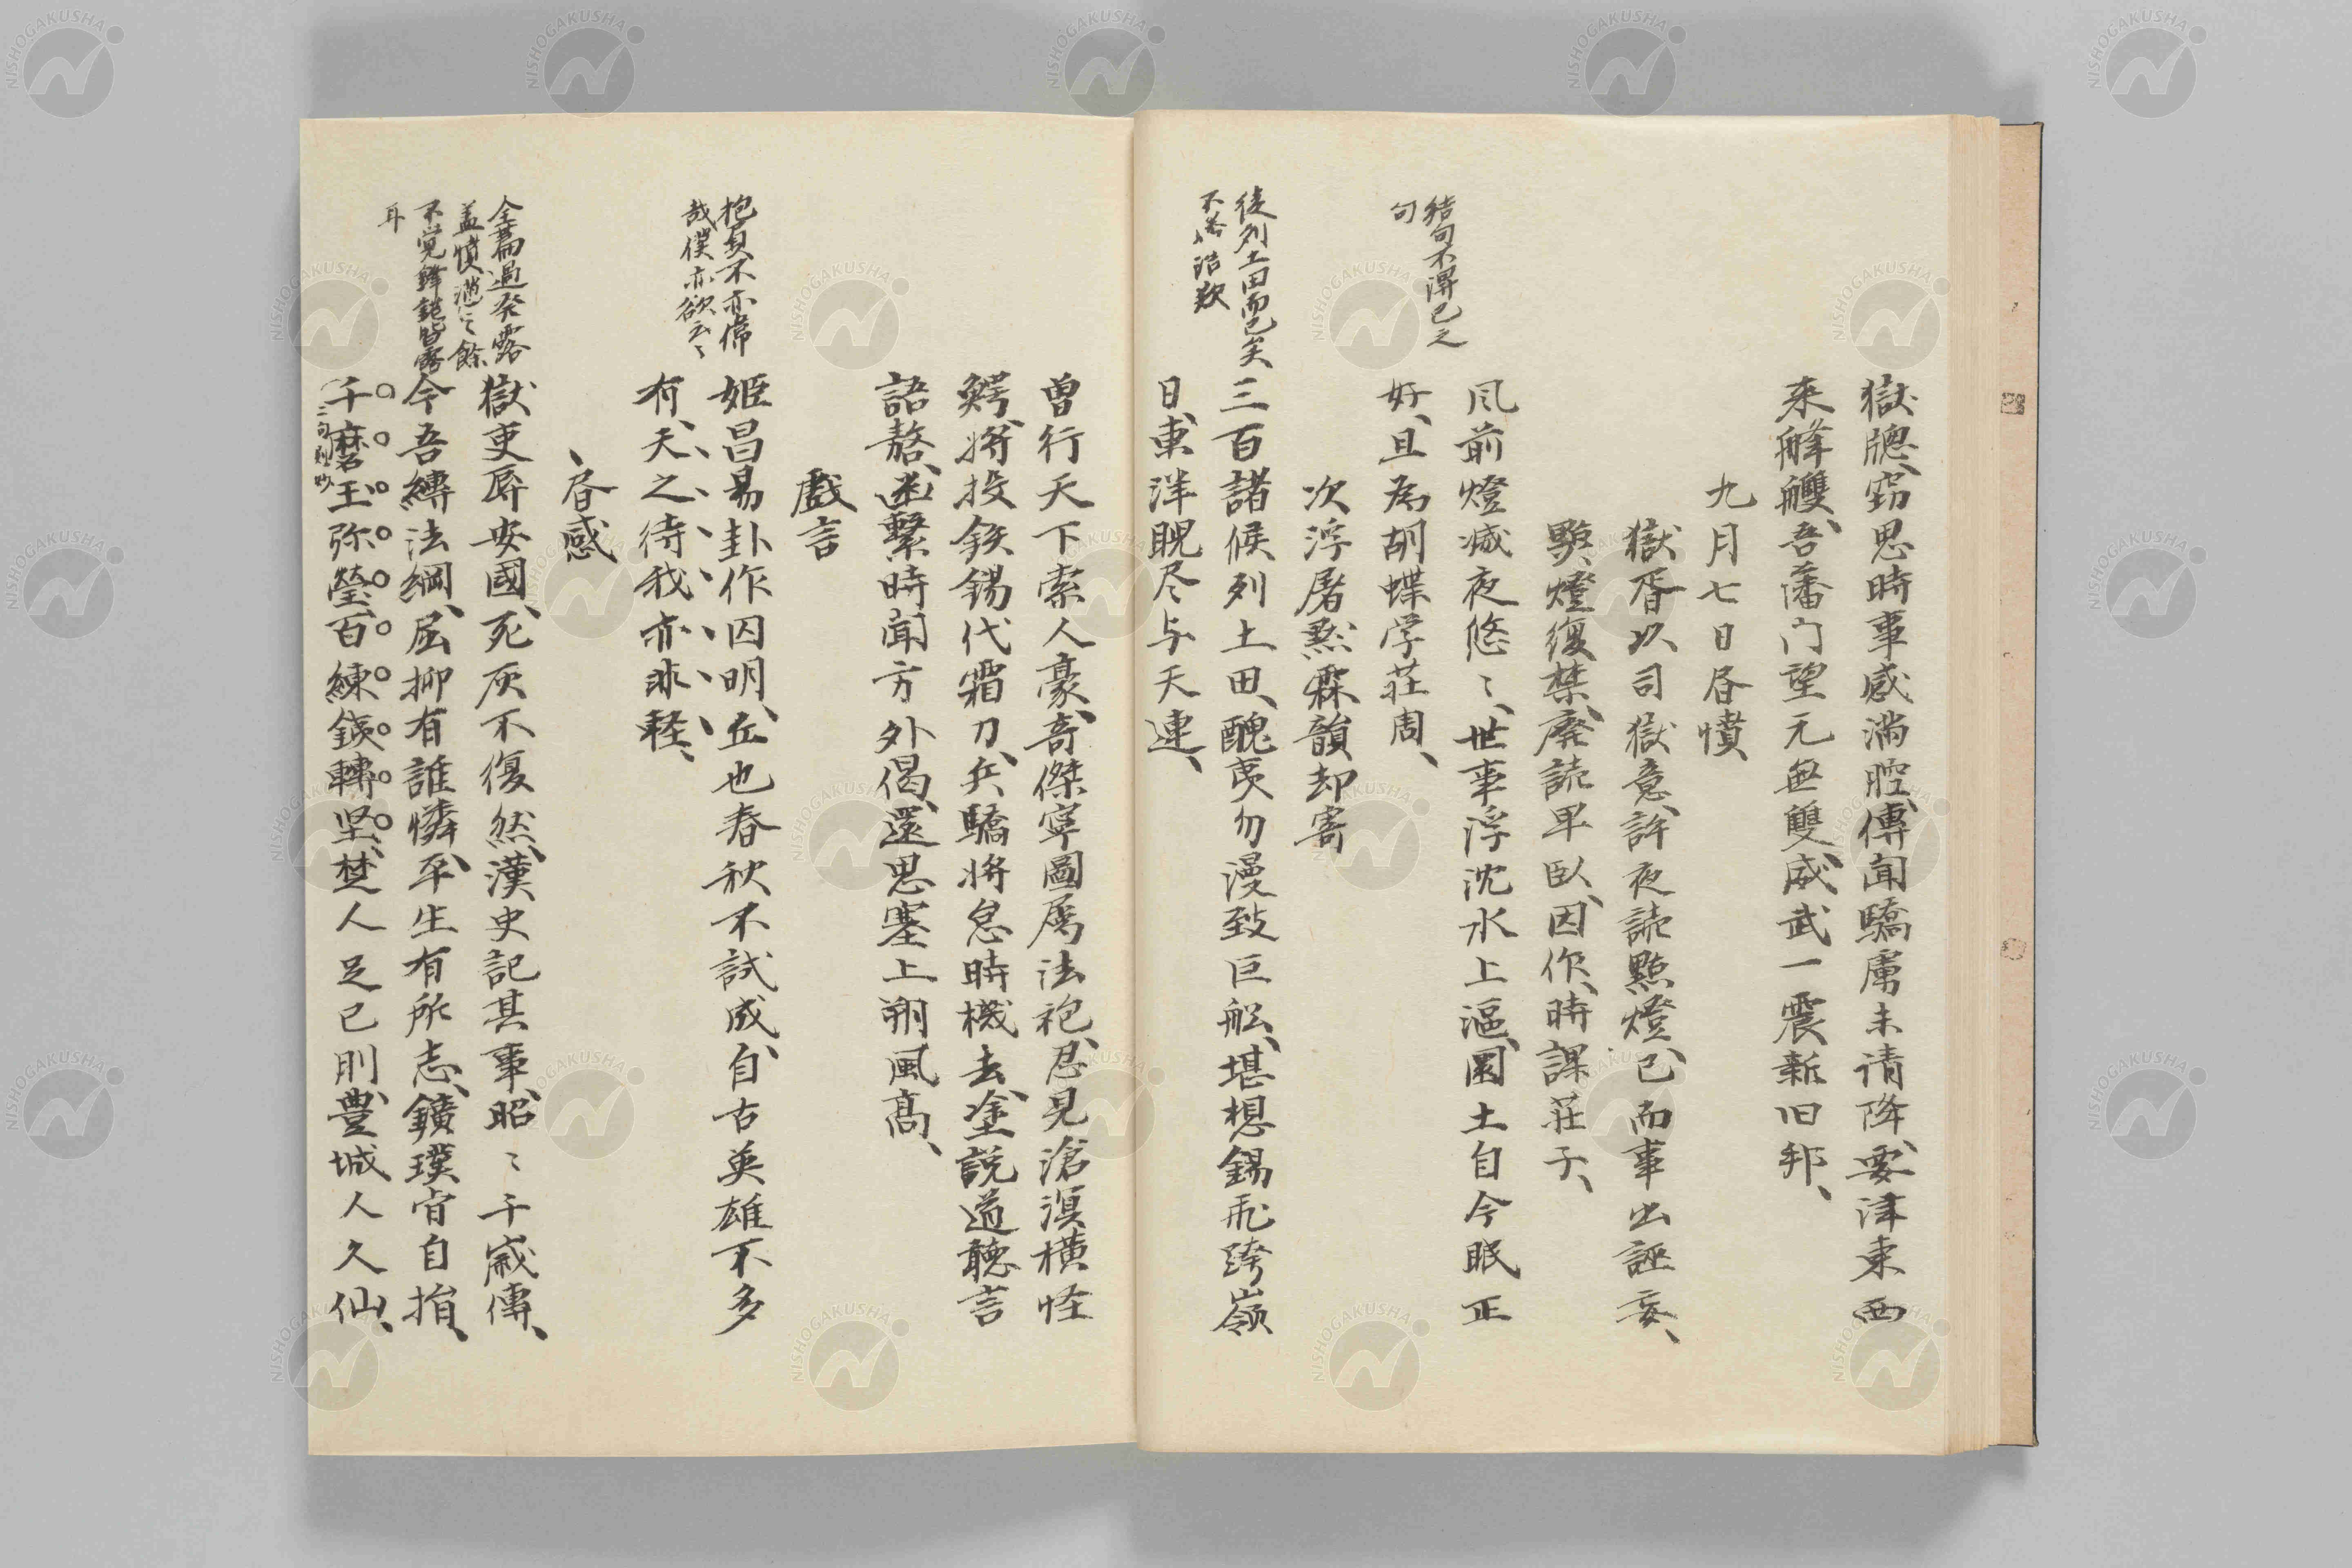 獄牕窃思時事感満腔、傳聞驕虜未请降、要津東西
来艀艭、吾藩门望元無雙、威武一震新旧邦、
九月七日昏憤
獄胥以司獄意、許夜読點燈、已而事出誣妄、
點燈復禁、廃読早臥、因作、時課荘子、
结句不得已之
句
风前燈滅夜悠〻、世事浮沈水上漚、圜土自今眠正
好、且為胡蝶学荘周、
次浮屠黙霖韻却寄
徒列土田而已矣
三百諸侯列土田、醜夷勿漫致巨舩、堪想錫飛跨嶺
日、東洋睨尽与天連、
曽行天下索人豪、奇傑寧圖属法袍、忍見滄溟横怪
鰐、将投鉄錫代霜刀、兵驕将怠時機去、塗説道聴言
語嶅、幽繋時聞方外偈、還思塞上朔風髙、
戯言
抱負不亦偉
哉僕亦欲云〻
姬昌易卦作囚明、丘也春秋不試成、自古英雄不多
有、天之待我亦非軽、
昏感
全篇過発露
盖憤懣之餘
不覚鋒鋩皆露
耳
獄吏辱安國、死灰不復然、漢史記其事、昭〻千歳傳、
今吾縛法綱、屈抑有誰憐、平生有所志、鑛璞肯自捐、
千磨玉弥瑩、百練鉄轉坚、楚人足已刖、豊城人久仙、
二句絶妙